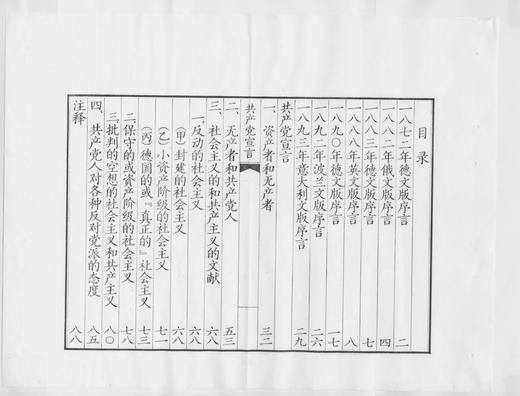 目录
一八七二年德文版序言 二
一八八二年俄文版序言 四
一八八三年德文版序言 七
一八八八年英文版序言 八
一八九〇年德文版序言 一七
一八九二年波兰文版序言 二六
一八九三年意大利文版序言 二九
共产党宣言
一、资产者和无产者 三二
共产党宣言
二、无产者和共产党人 五三
三、社会主义的和共产主义的文献 六八
一、反动的社会主义 六八
（甲）封建的社会主义 六八
（乙）小资产阶级的社会主义 七一
（丙）德国的或『真正的』社会主义 七三
二、保守的或资产阶级的社会主义 七八
三、批判的空想的社会主义和共产主义 八〇
四、共产党人对各种反对党派的态度 八五
注释 八八